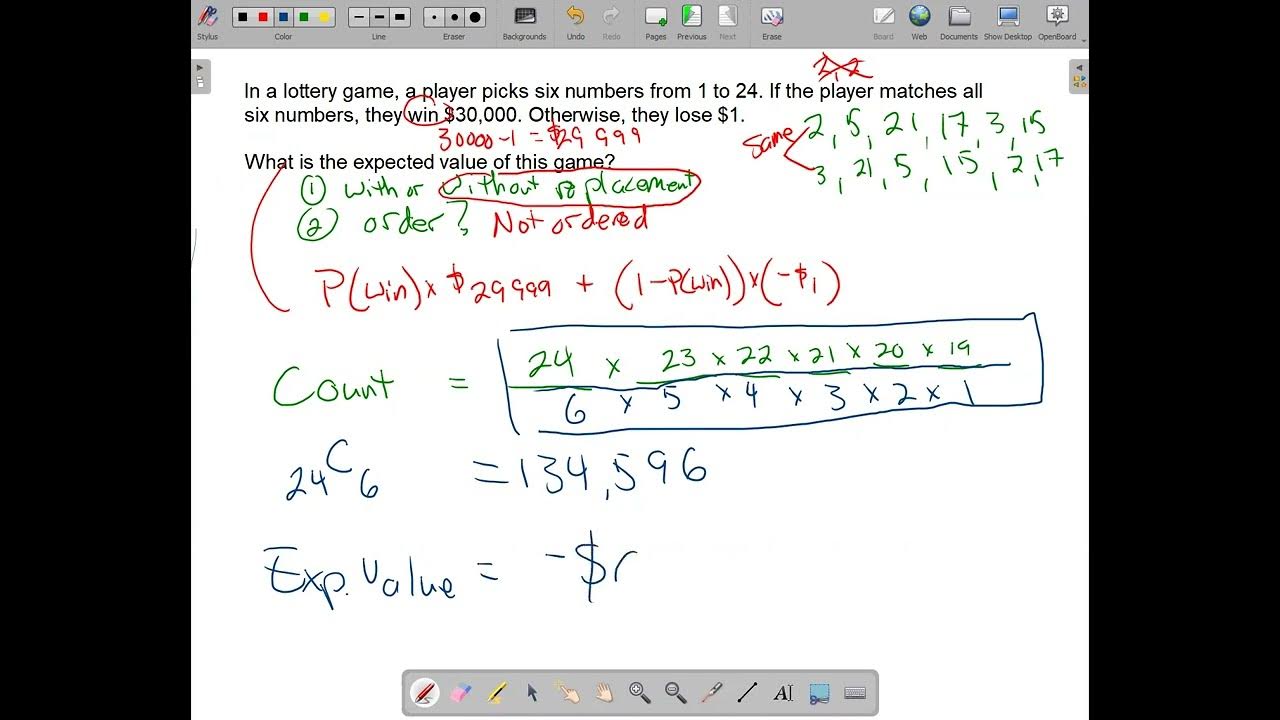 Stylus Color Line Eraser Backgrounds Undo Redo Pages Previous Next Erase Board Web Documents Show Desktop OpenBoard
2,2
In a lottery game, a player picks six numbers from 1 to 24. If the player matches all
six numbers, they win $30,000. Otherwise, they lose $1.
2, 5, 21, 17, 3, 15
30000-1 = $29999
same
What is the expected value of this game?
3, 21, 5, 15, 2, 17
① with or without replacement
② order? Not ordered
P(win) x $29999 + (1-P(win)) x (-$1)
24 x 23 x 22 x 21 x 20 x 19
Count =
6 x 5 x 4 x 3 x 2 x 1
24C6 = 134,596
Exp. Value = -$